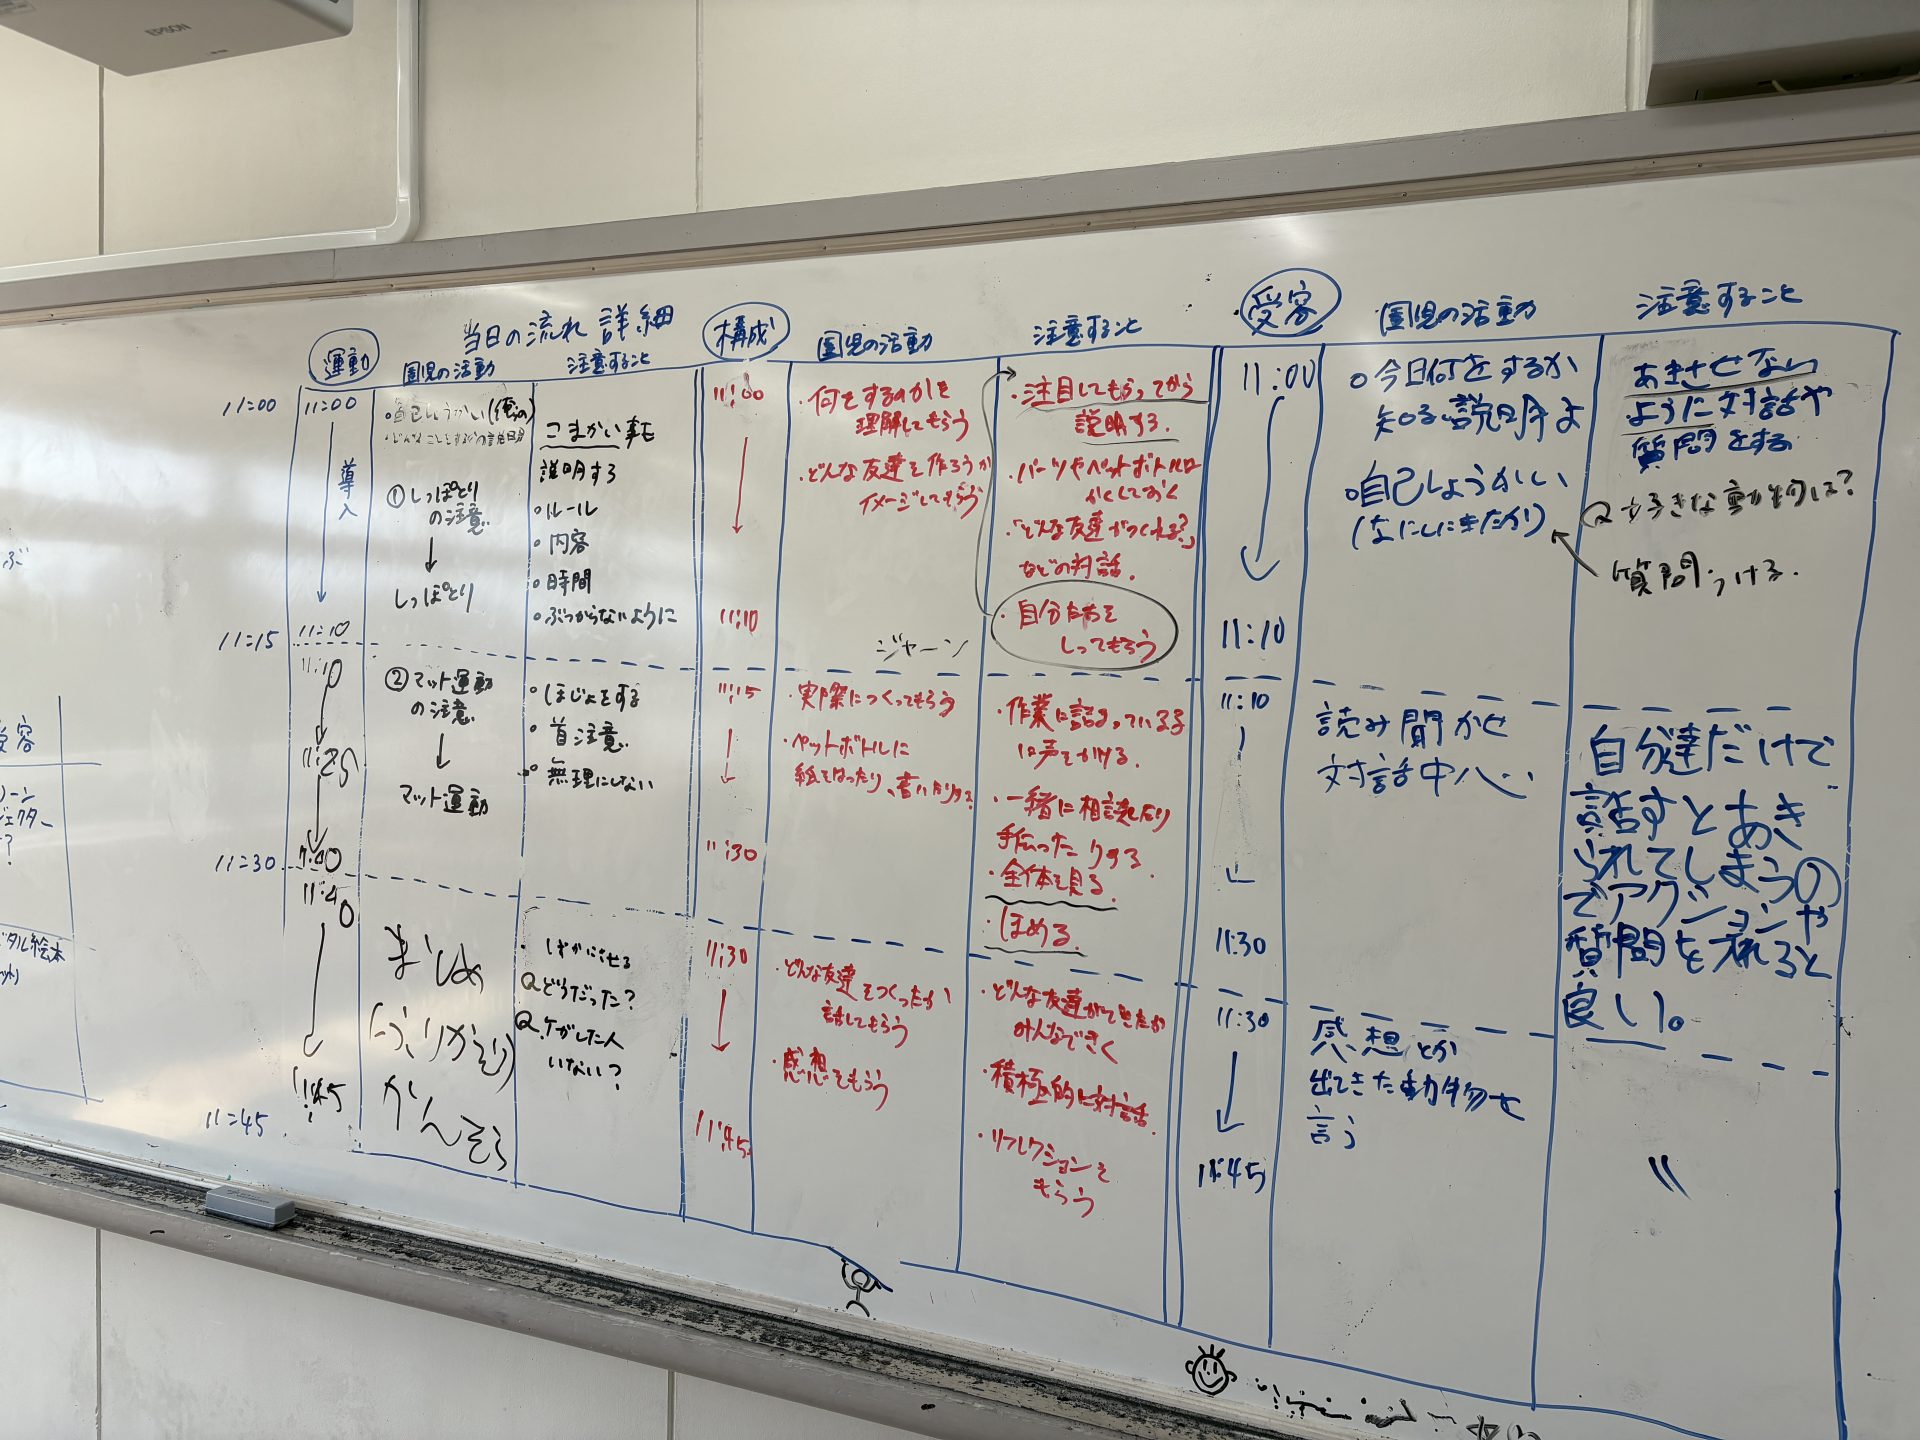 EPSON
当日の流れ 詳細
運動
園児の活動
注意すること
11:00
11:15
11:30
11:45
11:00
導入
11:10
11:10
11:25
11:40
11:40
11:45
・自己しょうかい
① しっぽとり
の注意
↓
しっぽとり
② マット運動
の注意
↓
マット運動
まじめ
ふりかえり
かんそう
こまかい事も
説明する
○ルール
○内容
○時間
○ぶつからないように
○ほじょをする
○首注意
○無理にしない
・しずかにさせる
Qどうだった?
Q.ケがした人
いない?
構成
園児の活動
注意すること
11:00
11:10
11:15
11:30
11:30
11:45
・何をするのかを
理解してもらう
・どんな友達を作ろうか
イメージしてもらう
ジャーン
・実際につくってもらう
・ペットボトルに
絵をはったり、書いたりする
・どんな友達をつくったか
話してもらう
・感想をもらう
・注目してもらってから
説明する.
・パーツやペットボトルは
かくしておく
・「どんな友達がつくれる?」
などの対話.
・自分たちを
しってもらう
・作業に詰まっている子
に声をかける.
・一緒に相談したり
手伝ったりする.
・全体を見る
・ほめる
・どんな友達ができたか
みんなできく
・積極的に対話.
・リフレクションを
もらう
受容
園児の活動
注意すること
11:00
11:10
11:10
11:30
11:30
11:45
○今日何をするか
知る説明よ
○自己しょうかい
(なにしにきたか)
読み聞かせ
対話中心
感想とか
出てきた動物を
言う
あきさせない
ように対話や
質問をする
Q 好きな動物は?
質問うける.
自分達だけで
話すとあき
られてしまうの
でアクションや
質問を入れると
良い。
〃